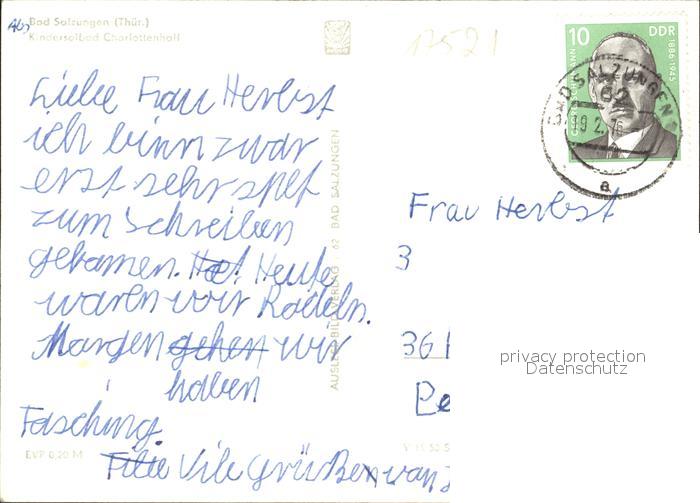 Abs
Bad Salzungen (Thür.)
Kindersolbad Charlottenhall
17521
10 DDR
1886-1945
BAD SALZUNGEN 1
62
19.2.76
a
Liebe Frau Herbst
ich binn zwar
erst sehr spet
zum schreiben
gekamen. Hat Heute
waren wir Rodeln.
Morgen gehen wir
haben
Fasching.
Vile Grüßen van
AUSLESE-BILD-VERLAG . 62 BAD SALZUNGEN
Frau Herbst
3
361
EVP 0,20 M
privacy protection
Datenschutz